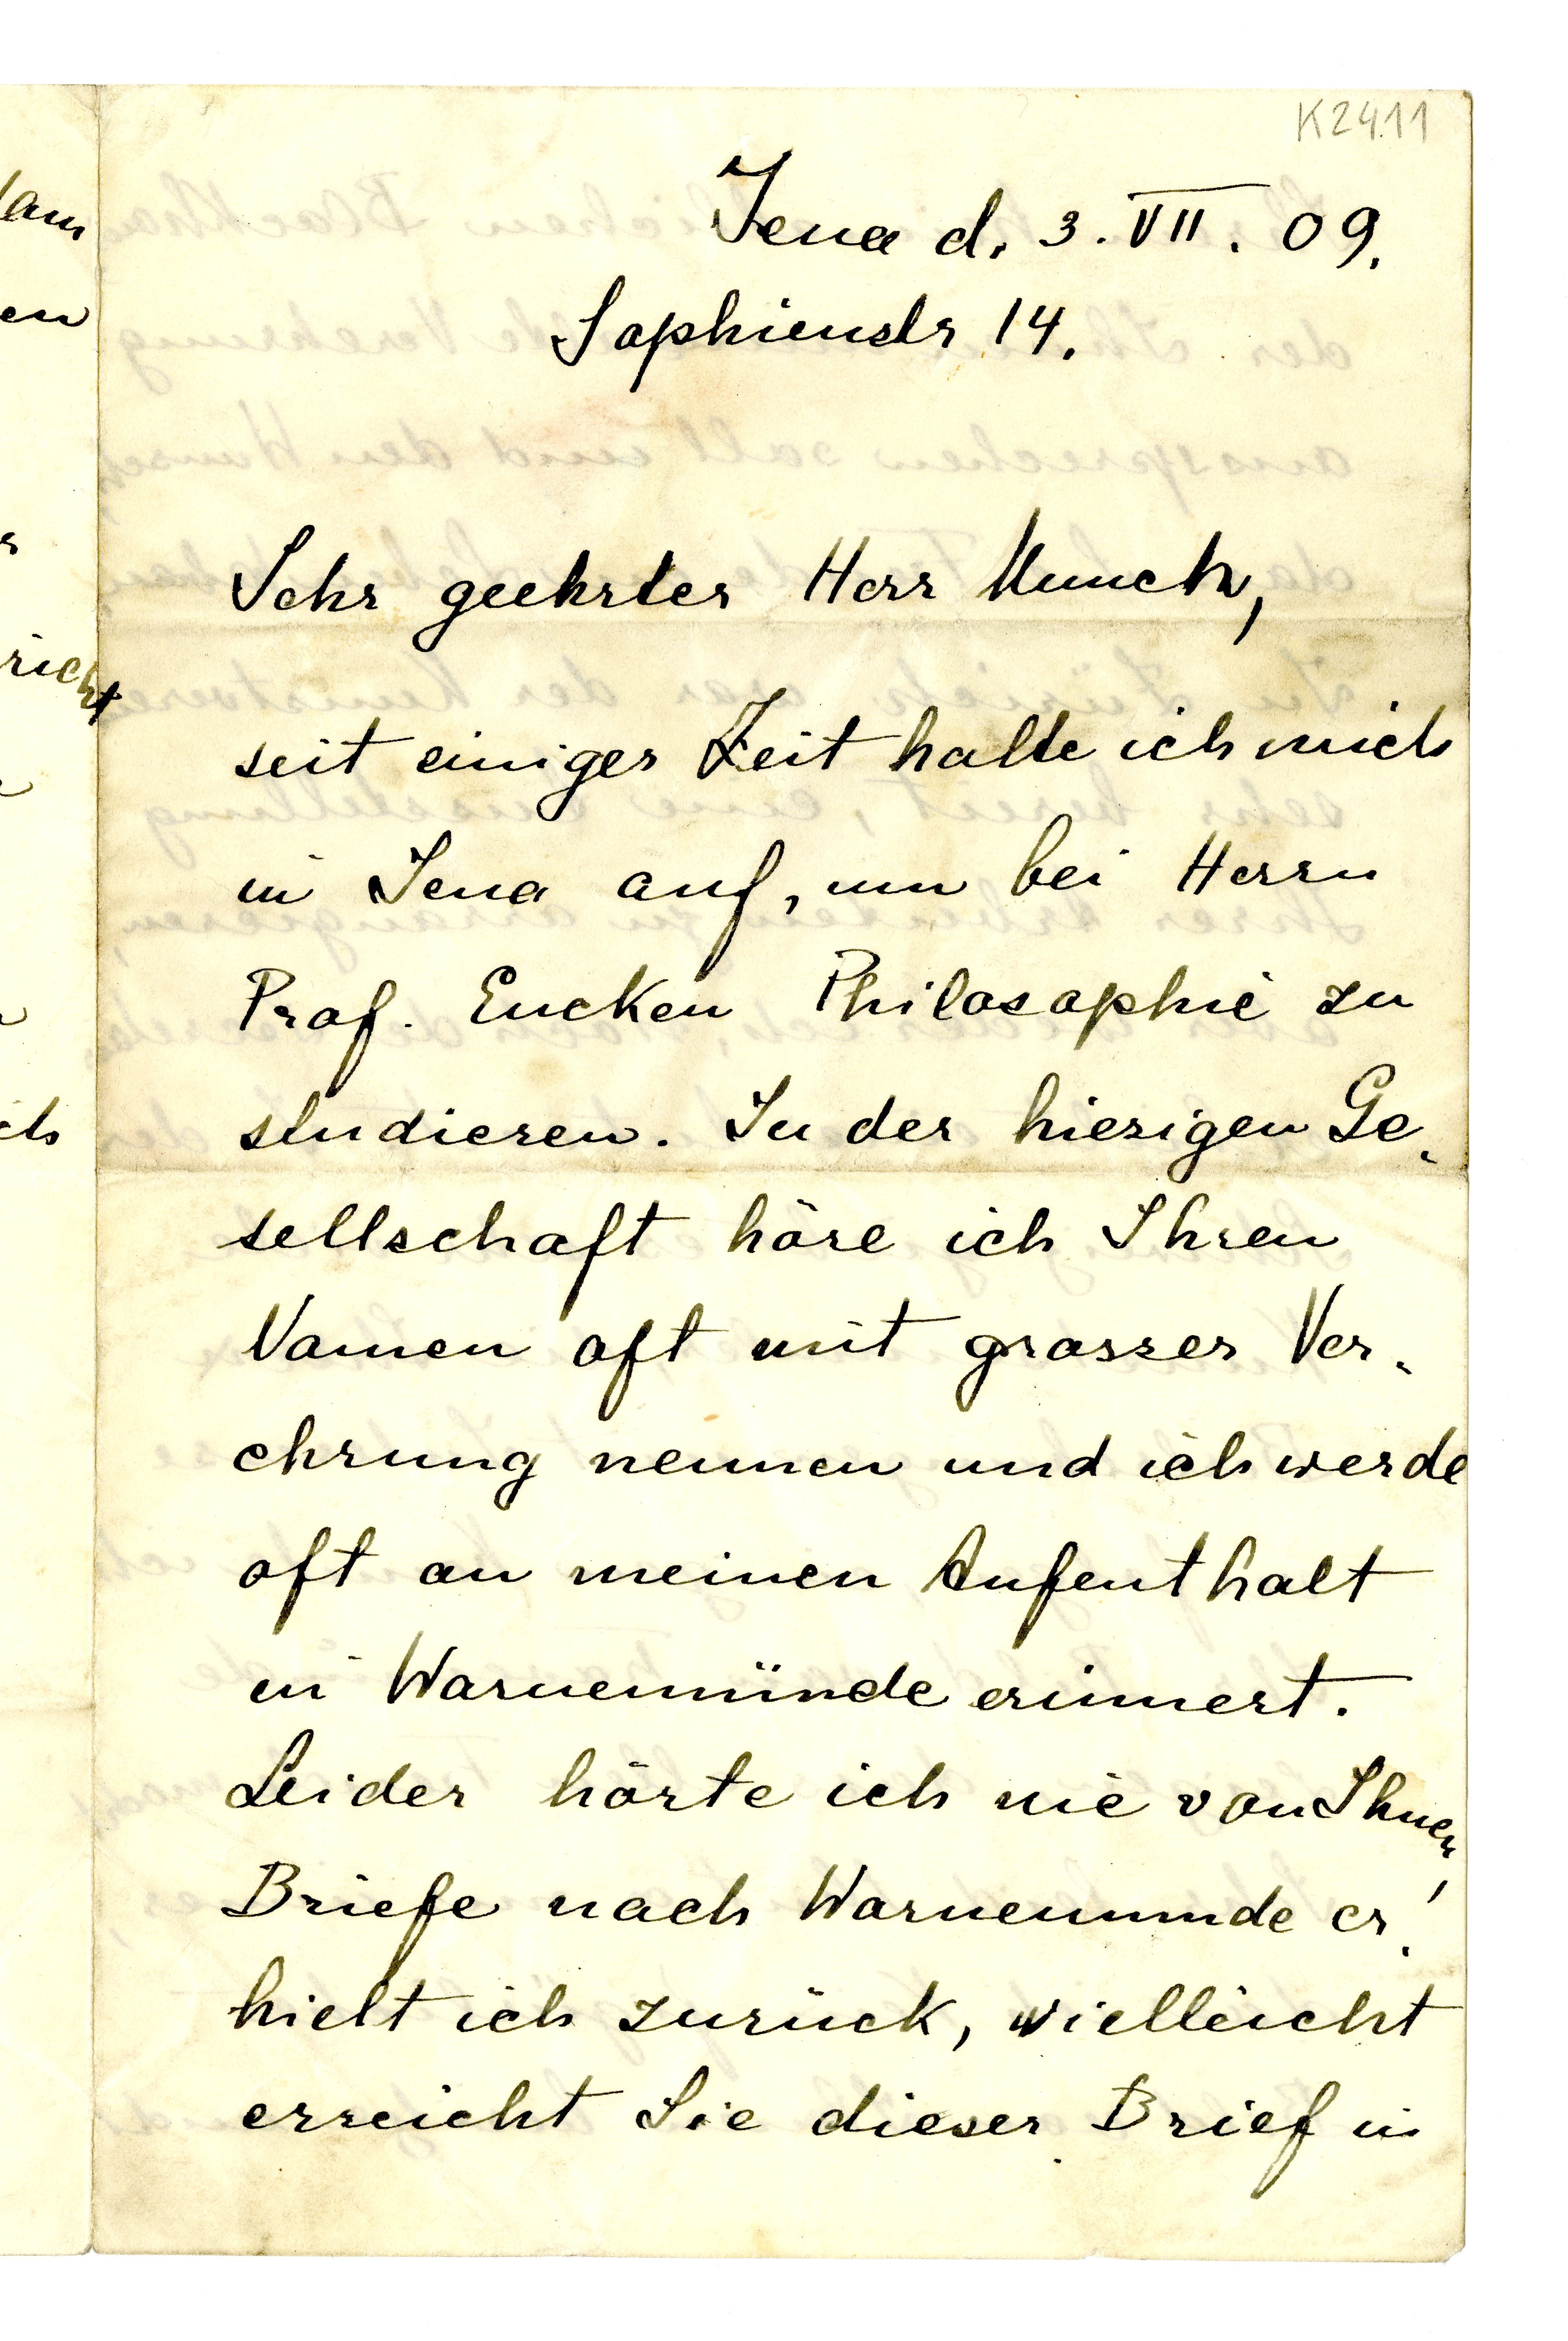 K2411
Jena d. 3. VII. 09.
Sophienstr 14.
Sehr geehrter Herr Munch,
seit einiger Zeit halte ich mich
in Jena auf, um bei Herrn
Prof. Eucken Philosophie zu
studieren. In der hiesigen Ge-
sellschaft höre ich Ihren
Namen oft mit grosser Ver-
ehrung nennen und ich werde
oft an meinen Aufenthalt
in Warnemünde erinnert.
Leider hörte ich nie von Ihnen,
Briefe nach Warnemunde er-
hielt ich zurück, vielleicht
erreicht Sie dieser Brief in